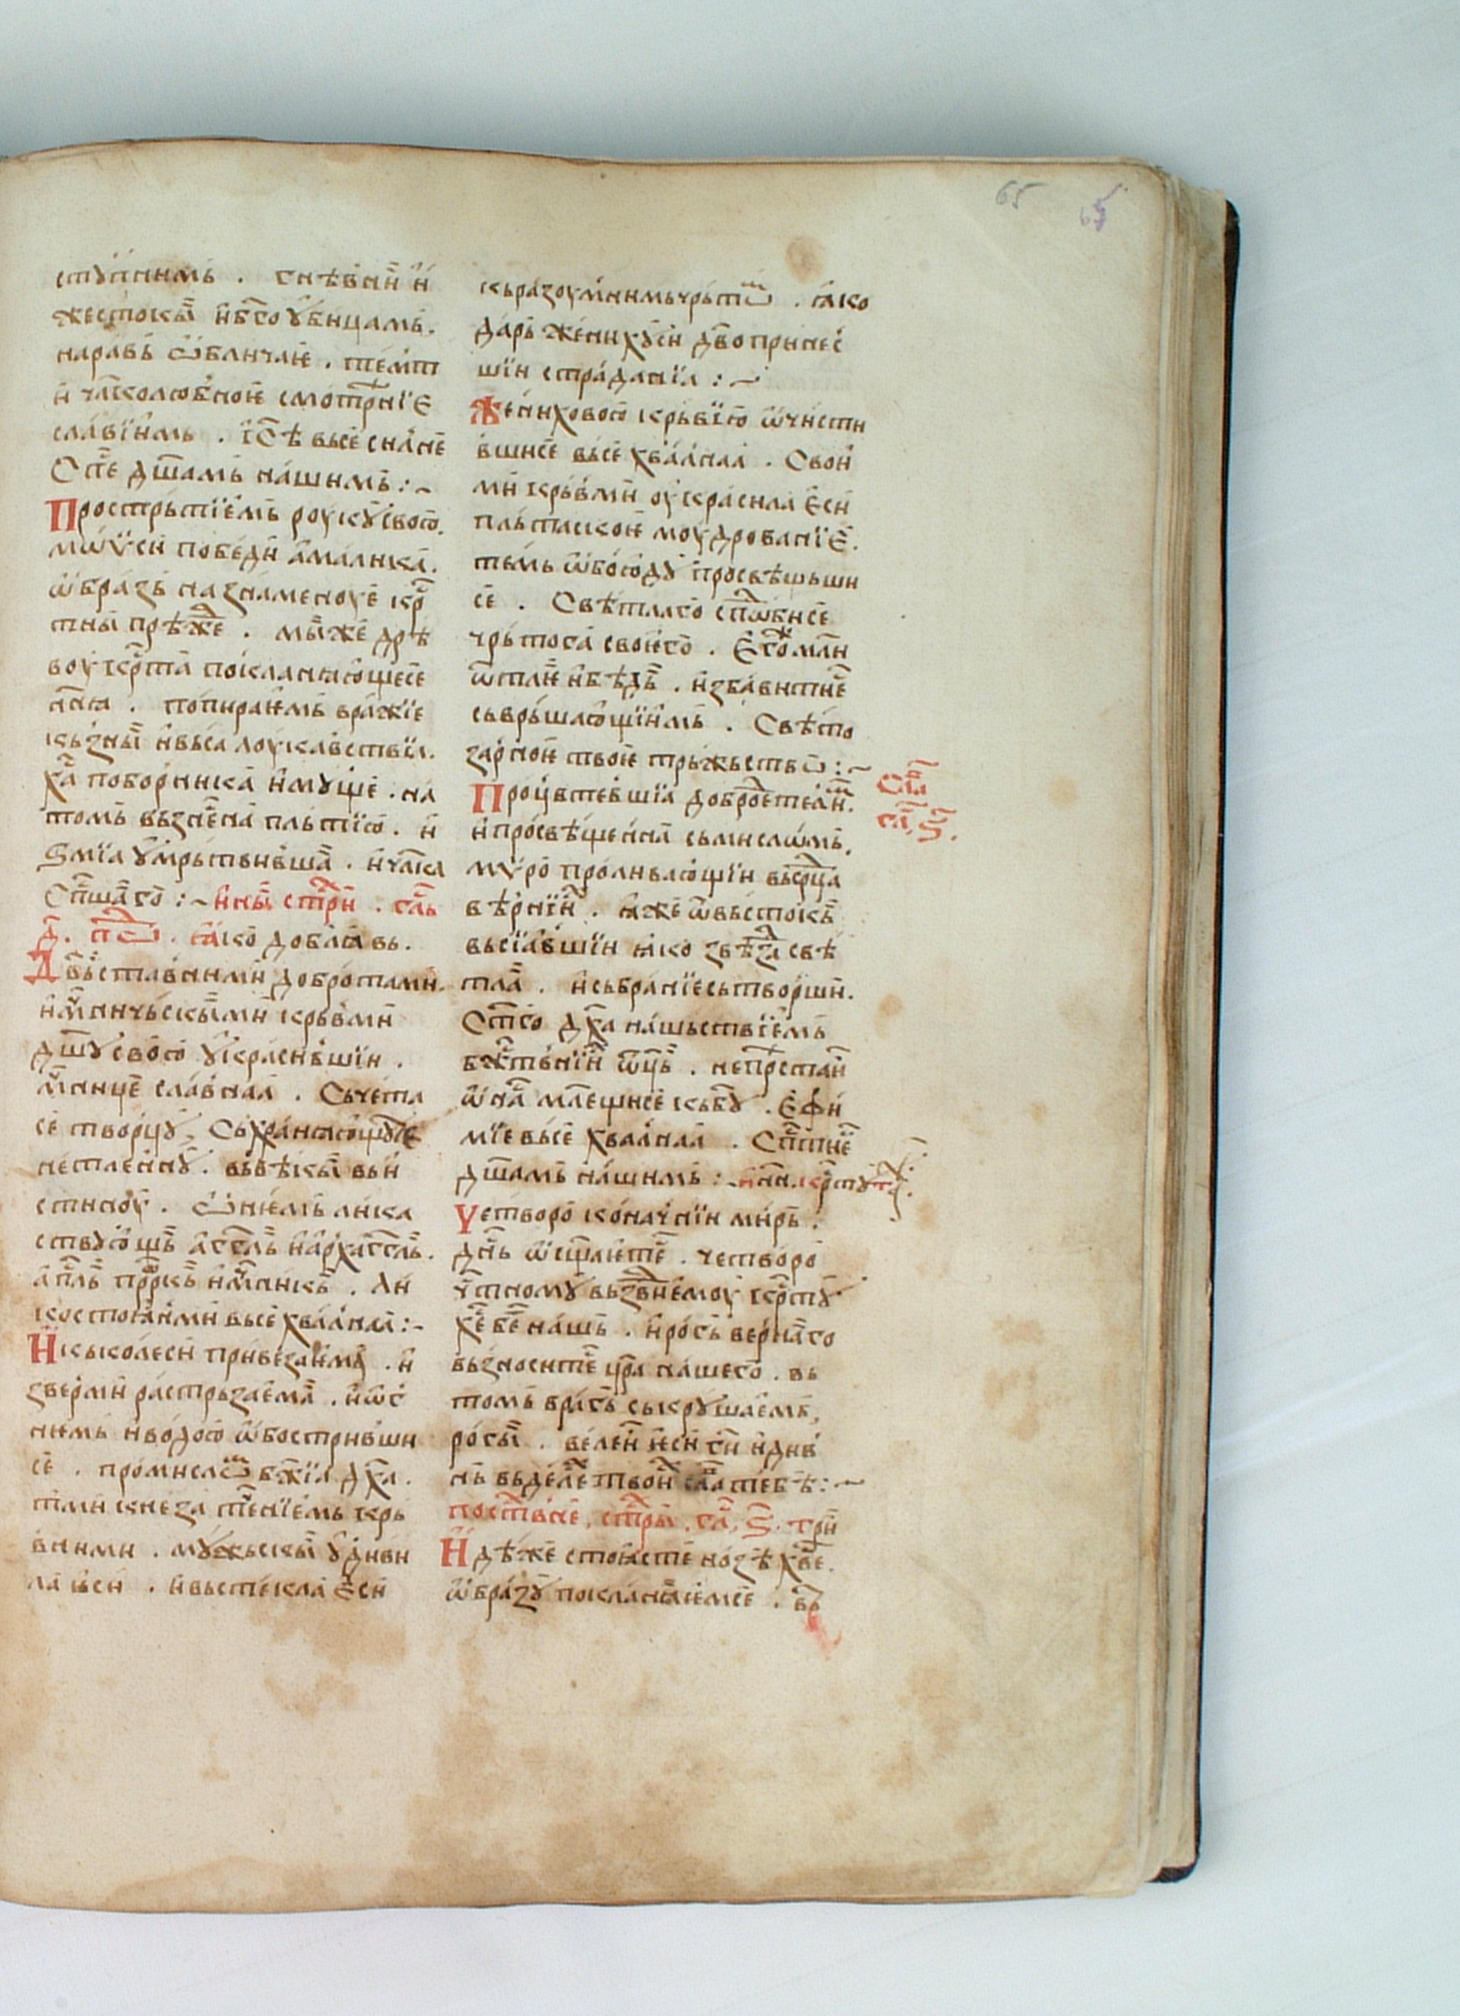 65
стꙋпнимь . гнѣвни и
жестокыи ибо ꙋбицамь .
наравь ѡбличаѥ . тѣмт
и чл҃колюбное смотрѥнїе
славїимь . іс҃е вьсесилне
Сп҃се дш҃амь нашимь :~
Прострьтїемь роукꙋ свою .
мѡѵси побѣди амалика .
ѡбразь назнаменоуе крс҃
тныи прѣж҃е . мыже дрѣ
воу крс҃та покланꙗющесе
попираемь вражїе
кьзныи и вьса лоукавствїа .
ха҃ поборника имꙋще . на
томь вьзнс҃ена пльтїю . и
ѕмїа ꙋмрьтвивша҃ . и чл҃ка
Сп҃сша҃го :~ ины҃ стр҃и . гл҃ь
д҃ . по҃д . ꙗко доблꙗ вь .
Двьствьними добротами .
и мч҃ничьскы҃ми крьвми
дш҃ꙋ свою ꙋкрасившїи .
мч҃нице славнаа . Сьчета
се творцꙋ . Сьхранꙗющꙋ те
нетлѣннꙋ . вьвѣкы вьи
стиноу . Сь нимь лика
ствꙋющь агг҃ль и архагг҃ль .
ап҃ль пр҃ркь и мч҃никь . ли
костоꙗними вьсехвалнаа :~
И кь колеси привезаѥма . и
звѣрми растрьзаѥма . и ѡг
нѥмь и водою ѡбостривши
се . промисло҃м бж҃їа дх҃а .
тми кнеза теч҃нїемь крь
вними . мꙋжьскы ꙋдиви
ла ѥси . и вьстекла еси
кь разоумнимь чрьто҃г . ꙗко
дарь женихꙋ си дв҃о принес
шїи страданїа :~
Женихового крьвїю ѡчисти
вшисе вьсехвалнаа . Свои
ми крьвми оукраснла еси
пльтьское моудрованїе .
тѣмь ѡбоюдꙋ просвѣщьши
се . Свѣтлаго спо҃добисе
чрьтога своѥго . Егож҃ моли
ѿ тле҃ и бѣдь . избавитис҃е
сьврьшающїимь . Свѣто
зарноѥ твоѥ трьжьство҃ :~
Процвтевшїа добродѣтел҃ми .
и просвѣщенна сьмисломь .
мѵро проливающїи вь срдц҃а
вѣрнїи҃х . ꙗже ѿ вьстокь
вьсїавшїи ꙗко звѣзда҃ свѣ
тла҃ . и сьбранїе сьтворши .
Ст҃го дх҃а нашьствїемь
бж҃ствнїи҃х ѿц҃ь . непрѣстан҃о
ѡ на҃с мл҃ещисе кь б҃ꙋ . Ефи
мїе вьсехвалнаа . Сп҃стис҃е
дш҃амь нашимь :~ и нн҃ꙗ . крс҃тꙋ
Четворо коначнїи мирь .
дн҃ь ѡсщ҃аетсе . четворо
чс҃тномꙋ вьздв҃иѥмоу крс҃тꙋ
хе҃ бе҃ нашь . и рогь верна҃го
вьзносите цр҃а нашего . вь
томь врагь ськрꙋшаемь
рогы . велеи҃ ѥси ги҃ и див
нь вь дѣле҃х твои҃х сл҃а тебѣ :~
постх҃вне . стр҃ы . гл҃ . ѕ҃ . три
Идѣже стоꙗсте нозѣ х҃ве .
ѡбразꙋ покланꙗемсе . вь
сла҃в
гл҃ . ѕ҃ .